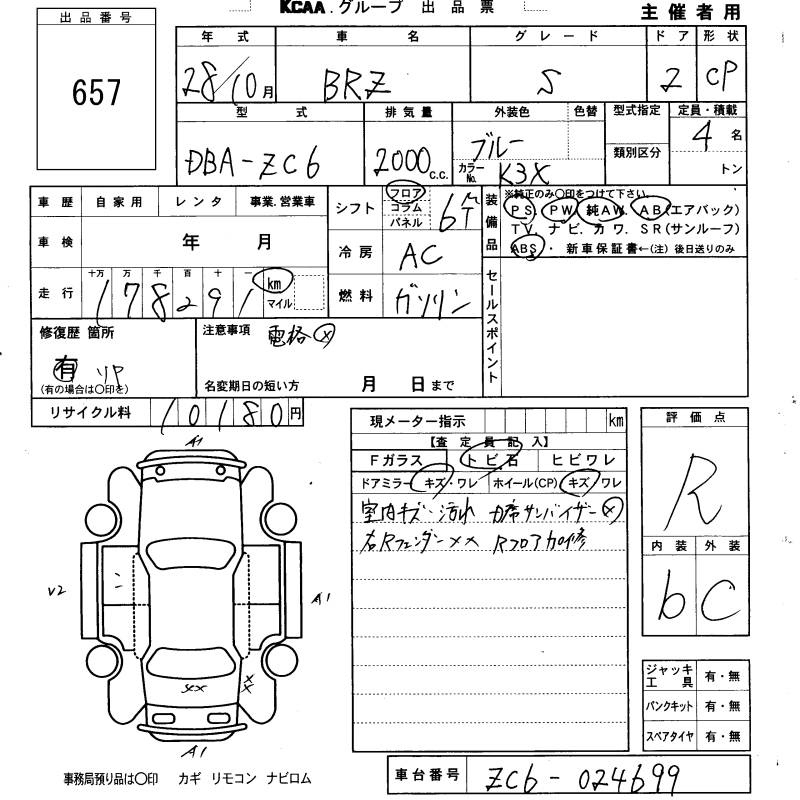 KCAA.グループ 出品票
主催者用
出品番号
657
年式 車名 グレード ドア 形状
28/10月 BRZ S 2 CP
型式 排気量 外装色 色替 型式指定 定員・積載
DBA-ZC6 2000c.c. ブルー 類別区分 4名
カラーNo. K3X トン
車歴 自家用 レンタ 事業.営業車
シフト フロア コラム パネル 6
装備品 ※純正のみ○印をつけて下さい。
PS. PW. 純AW. AB(エアバック)
TV. ナビ. カワ. SR(サンルーフ)
ABS・ 新車保証書←(注)後日送りのみ
車検 年 月
冷房 AC
走行 十万 万 千 百 十 一
178291 km マイル
燃料 ガソリン
セールスポイント
修復歴 箇所
有 リア
(有の場合は○印を)
注意事項 電格×
名変期日の短い方 月 日まで
リサイクル料 10180円
現メーター指示 km
【査定員記入】
Fガラス トビ石 ヒビワレ
ドアミラー キズ・ワレ ホイール(CP) キズ ワレ
室内キズ・汚れ 力席サンバイザー×
右Rフェンダー×× Rフロア加修
評価点
R
内装 外装
b C
A1
V2
A1
××
××
A1
ジャッキ工具 有・無
パンクキット 有・無
スペアタイヤ 有・無
事務局預り品は○印 カギ リモコン ナビロム
車台番号 ZC6-024699